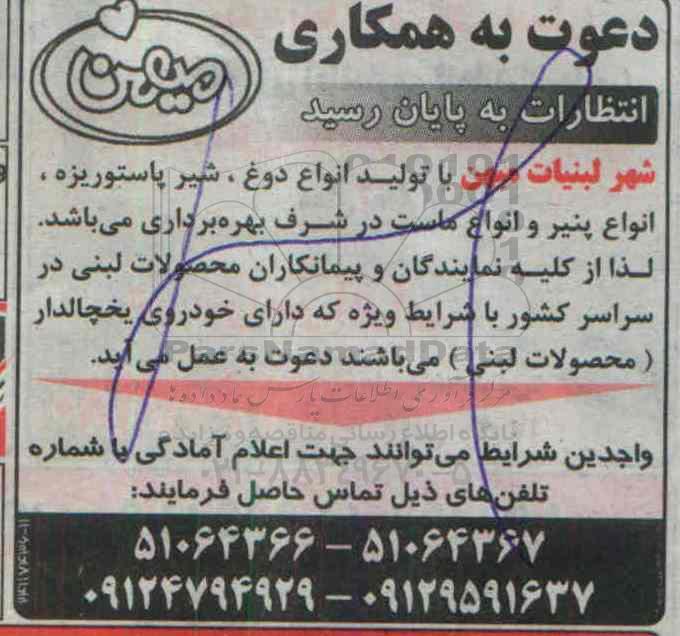 دعوت به همکاری
میهن
انتظارات به پایان رسید
شهر لبنیات میهن با تولید انواع دوغ ، شیر پاستوریزه ،
انواع پنیر و انواع ماست در شرف بهره‌برداری می‌باشد.
لذا از کلیه نمایندگان و پیمانکاران محصولات لبنی در
سراسر کشور با شرایط ویژه که دارای خودروی یخچالدار
( محصولات لبنی ) می‌باشند دعوت به عمل می آید.
ParsNamadData
مرکز فرآوری اطلاعات پارس نماد داده ها
پایگاه اطلاع رسانی مناقصه و مزایده
واجدین شرایط می‌توانند جهت اعلام آمادگی با شماره
تلفن‌های ذیل تماس حاصل فرمایند:
۵۱۰۶۴۳۶۶ – ۵۱۰۶۴۳۶۷
۰۹۱۲۴۷۹۴۹۲۹ – ۰۹۱۲۹۵۹۱۶۳۷